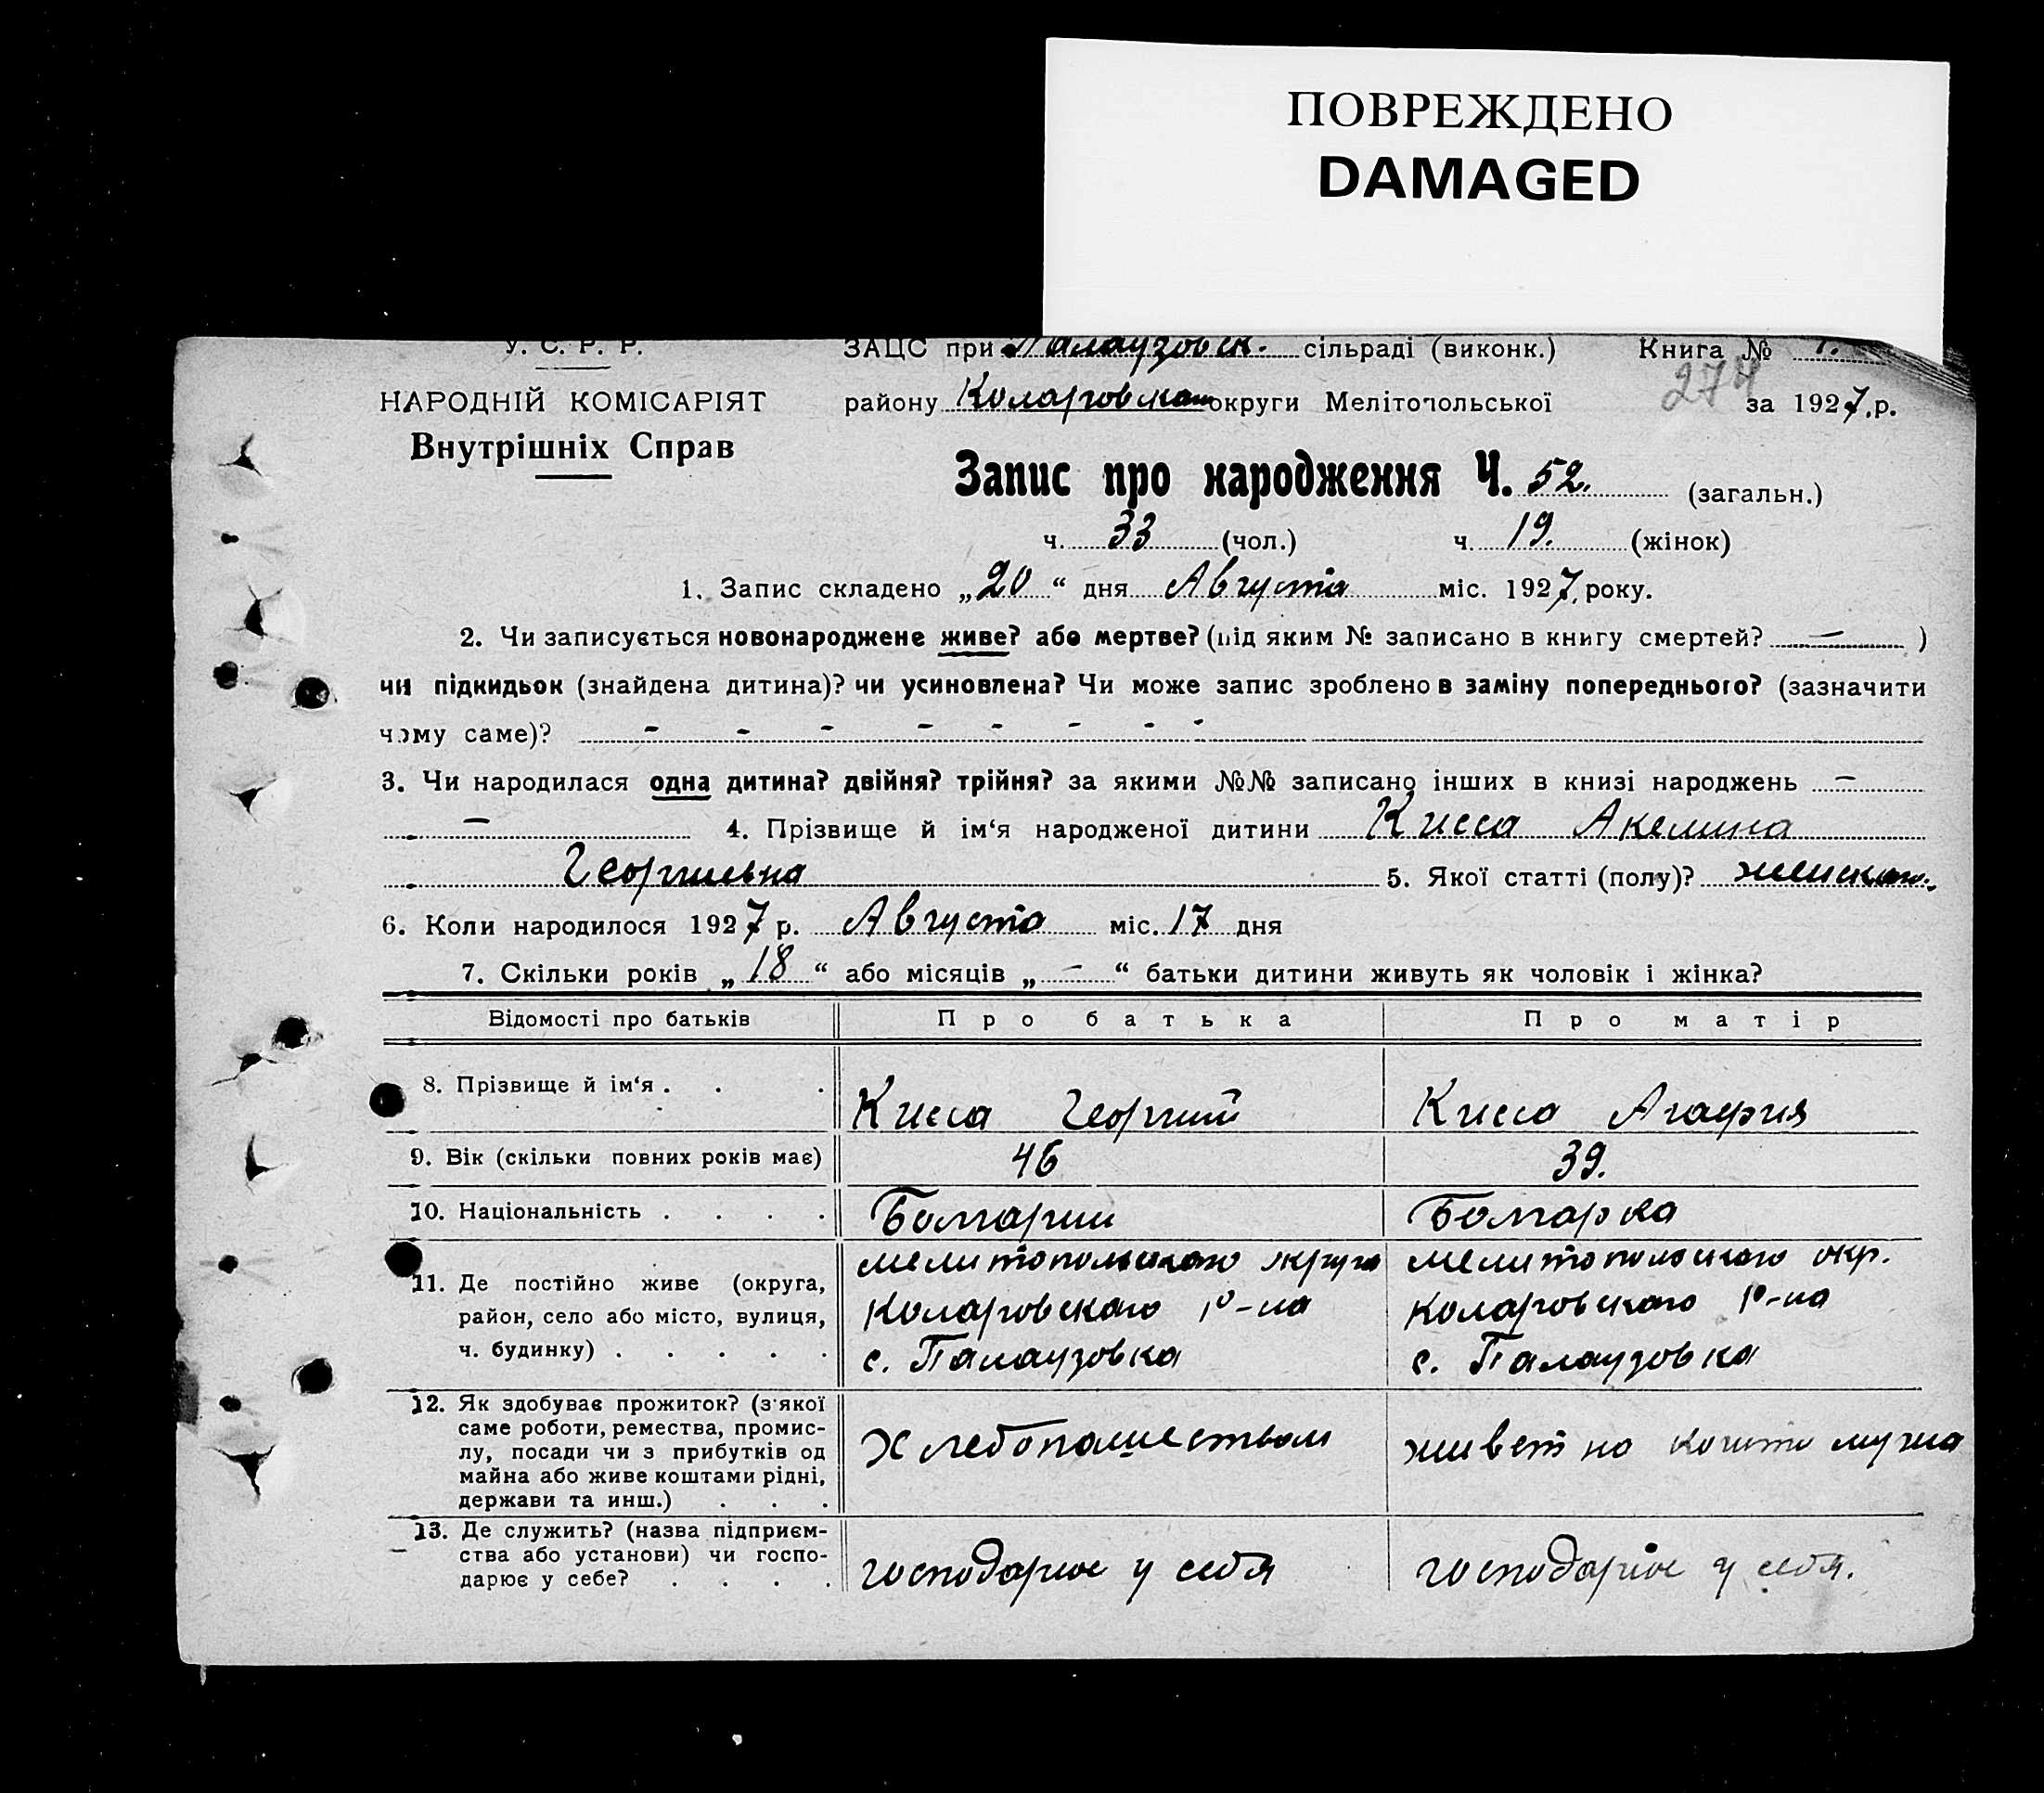 ПОВРЕЖДЕНО
DAMAGED
У. С. Р. Р. ЗАЦС при Палаузовск. сільраді (виконк.) Книга № 1.
274
НАРОДНІЙ КОМІСАРІЯТ району Коларовском округи Мелітопольської за 1927.р.
Внутрішніх Справ
Запис про народження Ч. 52. (загальн.)
ч. 33 (чол.) ч. 19. (жінок)
1. Запис складено „20“ дня Августа міс. 1927, року.
2. Чи записується новонароджене живе? або мертве? (під яким № записано в книгу смертей? — )
чи підкидьок (знайдена дитина)? чи усиновлена? Чи може запис зроблено в заміну попереднього? (зазначити
чому саме)? - - - - - - - -
3. Чи народилася одна дитина? двійня? трійня? за якими №№ записано інших в книзі народжень —
— 4. Прізвище й ім‘я народженої дитини Кисса Акелина
Георгиевна 5. Якої статті (полу)? женского.
6. Коли народилося 1927 р. Августа міс. 17 дня
7. Скільки років „18“ або місяців „-“ батьки дитини живуть як чоловік і жінка?
Відомості про батьків Про батька Про матір
8. Прізвище й ім‘я . . . Кисса Георгий Кисса Агафия
9. Вік (скільки повних років має) 46 39.
10. Національність . . . . Болгарин Болгарка
11. Де постійно живе (округа, мелитопольского округа мелитопольского окр.
район, село або місто, вулиця, Коларовского р-на Коларовского р-на
ч. будинку) . . . . . с. Палаузовка с. Палаузовка
12. Як здобуває прожиток? (з'якої
саме роботи, ремества, промис-
лу, посади чи з прибутків од Хлебопашеством живет на кошти мужа
майна або живе коштами рідні,
держави та инш.) . . .
13. Де служить? (назва підприєм-
ства або установи) чи госпо-
дарює у себе? . . . . господарює у себя господарює у себя.